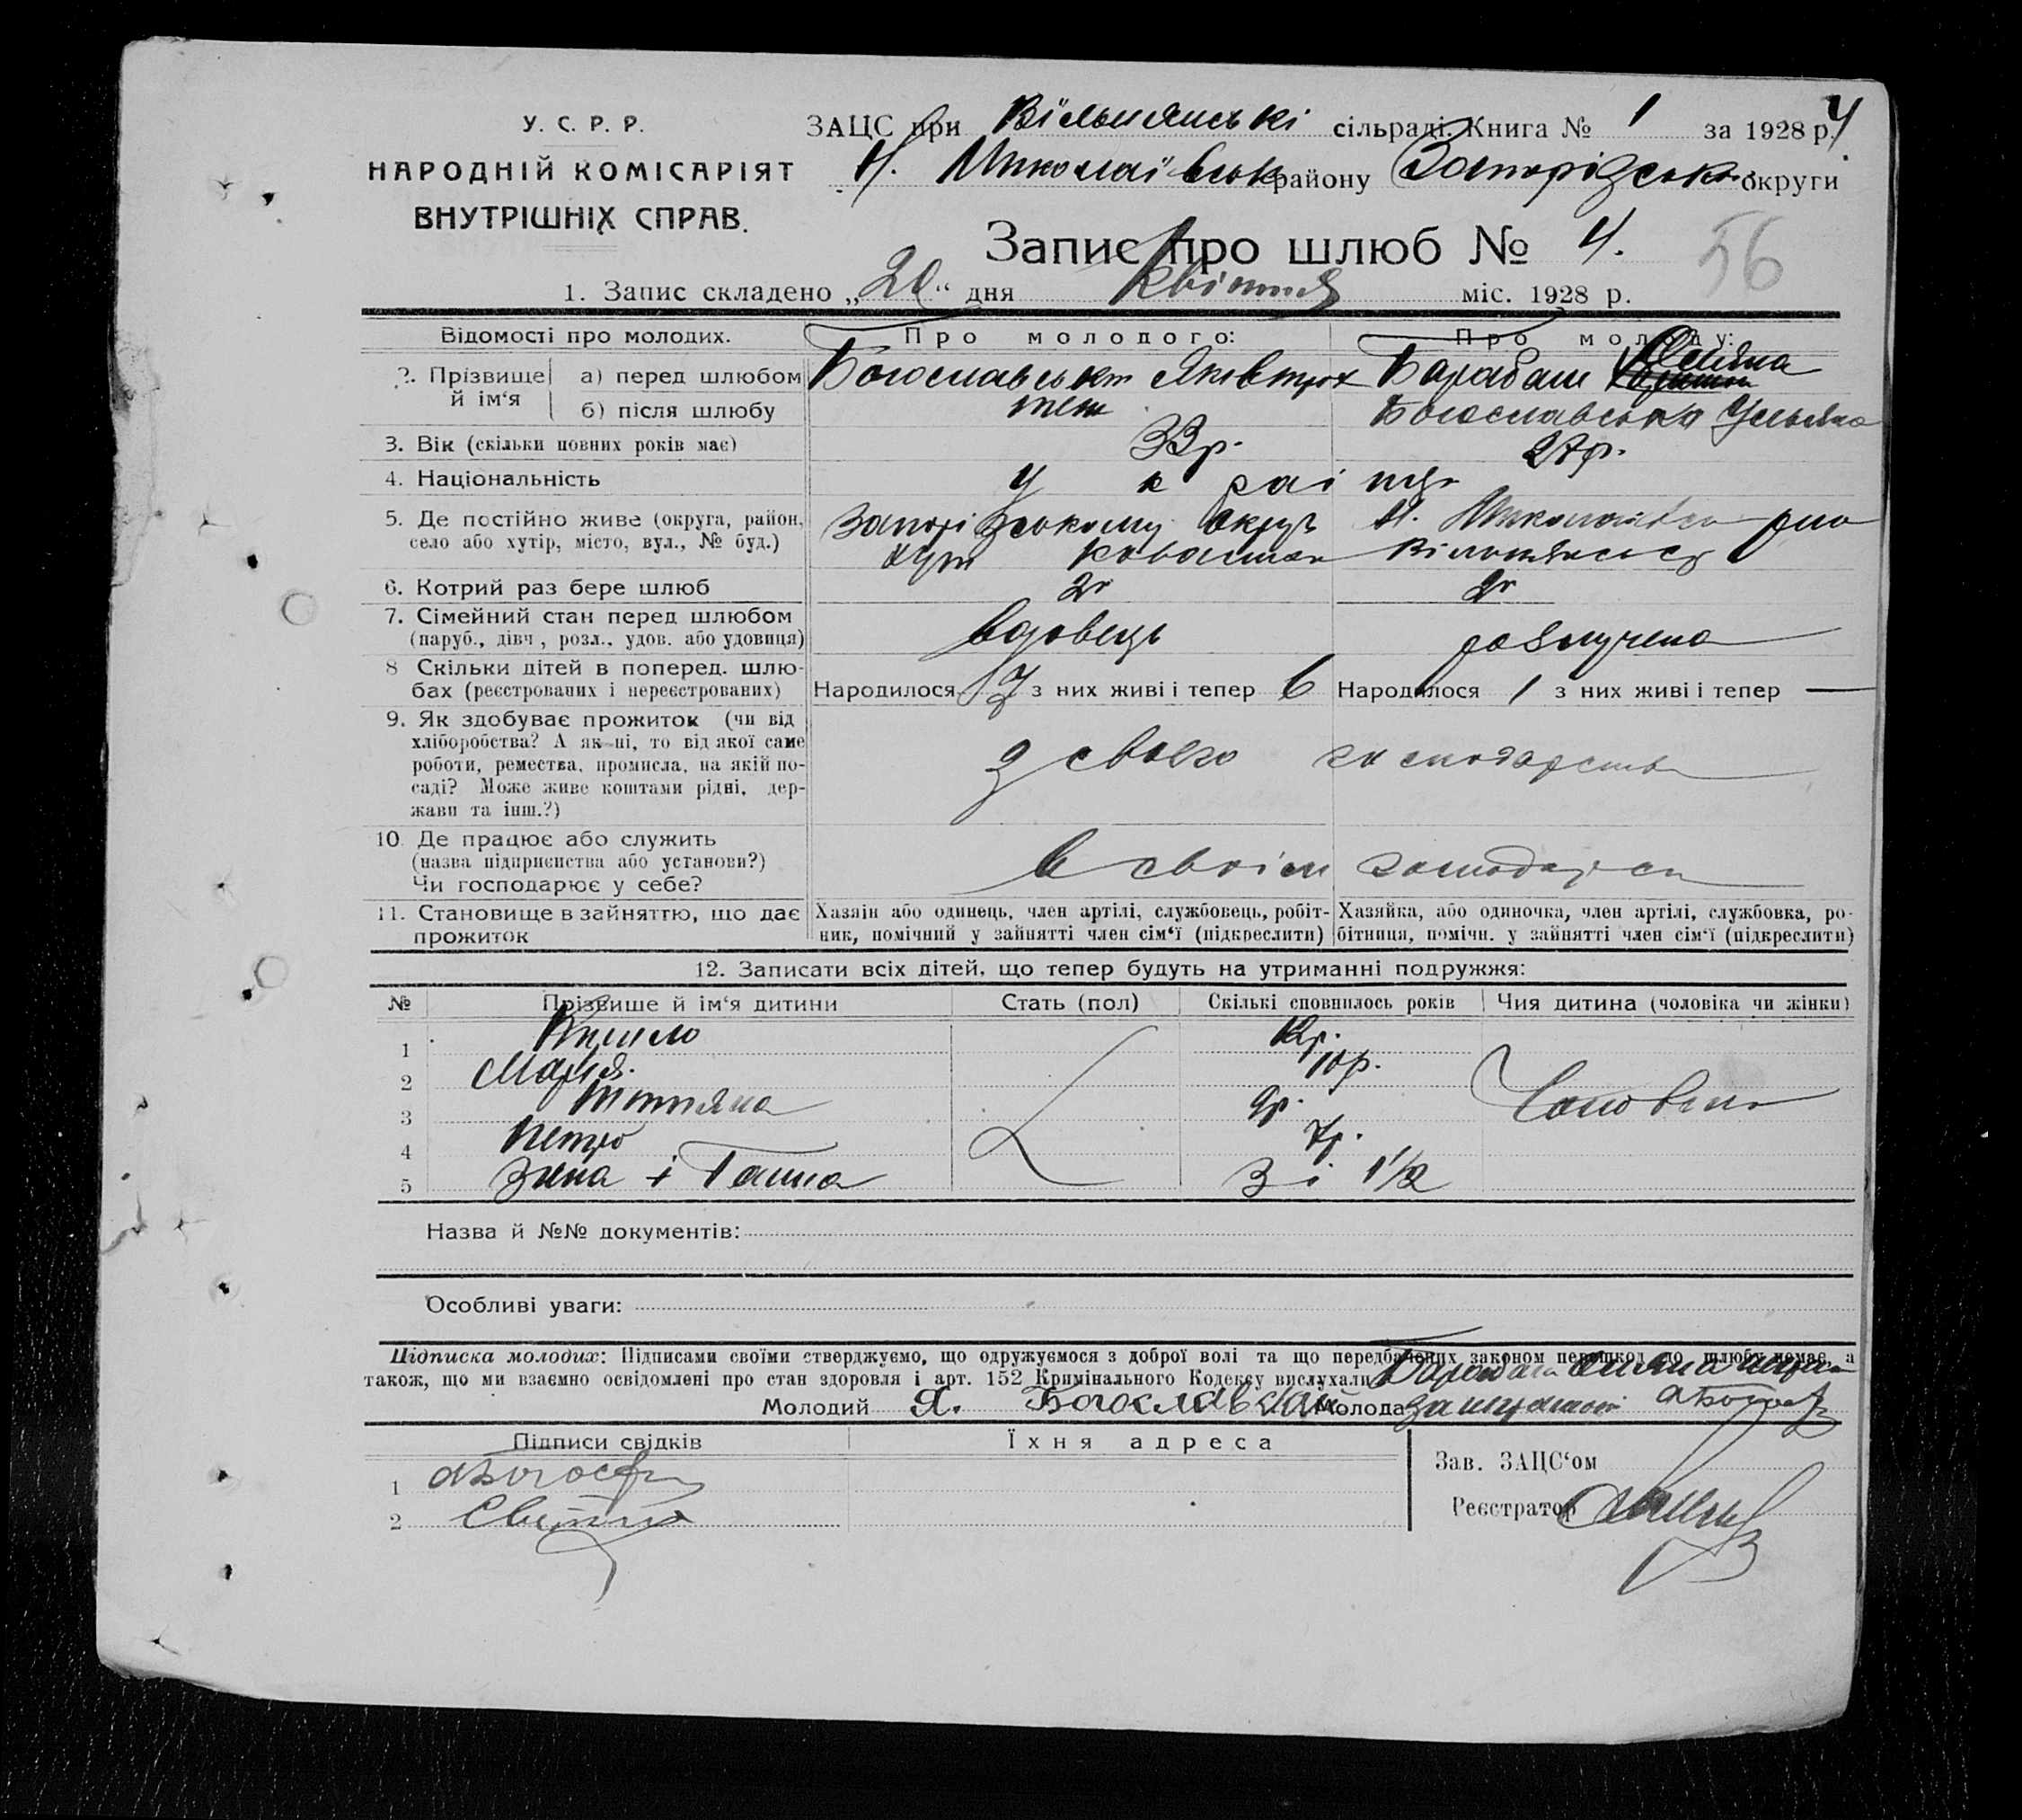 У. С. Р. Р.
НАРОДНІЙ КОМІСАРІЯТ
ВНУТРІШНІХ СПРАВ.
ЗАЦС при Вільнянські сільраді. Книга № 1 за 1928 р. 4
Н. Миколаївськ району Запорізської округи
Запис про шлюб № 4.
56
1. Запис складено „20“ дня Квітня міс. 1928 р.
Відомості про молодих. Про молодого: Про молоду:
2. Прізвище й ім‘я а) перед шлюбом Богославський Барабаш Уляна
б) після шлюбу теж Богославська Ульяна
3. Вік (скільки повних років має) 33 р. 27 р.
4. Національність Украінці
5. Де постійно живе (округа, район, Запорізському окрузі Н. Миколаївсь
село або хутір, місто, вул., № буд.) хут
6. Котрий раз бере шлюб 2й 2й
7. Сімейний стан перед шлюбом
(паруб., дівч, розл., удов. або удовиця) вдовець розлучена
8 Скільки дітей в поперед. шлю-
бах (реєстрованих і нереєстрованих) Народилося 7 з них живі і тепер 6 Народилося 1 з них живі і тепер —
9. Як здобуває прожиток (чи від
хліборобства? А як ні, то від якої саме
роботи, ремества, промисла, на якій по- з свого господарства
саді? Може живе коштами рідні, дер-
жави та інш.?)
10 Де працює або служить
(назва підприємства або установи?) в своїм господарсті
Чи господарює у себе?
11. Становище в зайняттю, що дає прожиток
Хазяін або одинець, член артілі, службовець, робіт-
ник, помічний у зайнятті член сім‘ї (підкреслити)
Хазяйка, або одиночка, член артілі, службовка, ро-
бітниця, помічн. у зайнятті член сім‘ї (підкреслити)
12. Записати всіх дітей, що тепер будуть на утриманні подружжя:
№ Прізвише й ім‘я дитини Стать (пол) Скількі сповнилось років Чия дитина (чоловіка чи жінки)
1 12р.
2 Марія. 10р.
3 Титяна 9р. Чоловіка
4 Петро 7р.
5 Зина і Ганна 3 і 1½
Назва й №№ документів:
Особливі уваги:
Підписка молодих: Підписами своїми стверджуємо, що одружуємося з доброї волі та що передбачених законом перешкод до шлюбу немає, а
також, що ми взаємно освідомлені про стан здоровля і арт. 152 Кримінального Кодексу вислухали Барабаш Уляна
Молодий Я. Богославский Молода за
Підписи свідків Їхня адреса
Зав. ЗАЦС‘ом
1
Реєстратор
2